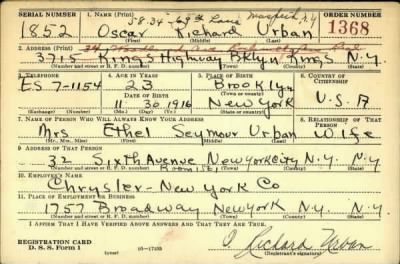 58-34-69th Lane Maspeth, N.Y.
SERIAL NUMBER 1. NAME (Print) ORDER NUMBER
1852 Oscar Richard Urban 1368
(First) (Middle) (Last)
2. ADDRESS (Print)
3715 Kings Highway Bklyn Kings N.Y.
(Number and street or R. F. D. number) (Town) (County) (State)
3. TELEPHONE 4. AGE IN YEARS 5. PLACE OF BIRTH 6. COUNTRY OF CITIZENSHIP
ES 7-1154 23 Brooklyn
DATE OF BIRTH
11 30 1916 New York U.S.A
(Exchange) (Number) (Mo.) (Day) (Yr.) (State or country)
7. NAME OF PERSON WHO WILL ALWAYS KNOW YOUR ADDRESS 8. RELATIONSHIP OF THAT PERSON
Mrs Ethel Seymour Urban Wife
(Mr., Mrs., Miss) (First) (Middle) (Last)
9. ADDRESS OF THAT PERSON
32 Sixth Avenue New York City N.Y. N.Y.
(Number and street or R. F. D. number) (Town) (County) (State)
10. EMPLOYER'S NAME
Chrysler-New York Co
11. PLACE OF EMPLOYMENT OR BUSINESS
1757 Broadway New York N.Y. N.Y.
(Number and street or R. F. D. number) (Town) (County) (State)
I AFFIRM THAT I HAVE VERIFIED ABOVE ANSWERS AND THAT THEY ARE TRUE.
REGISTRATION CARD
D. S. S. Form 1 (over) 16-17105 O. Richard Urban
(Registrant's signature)